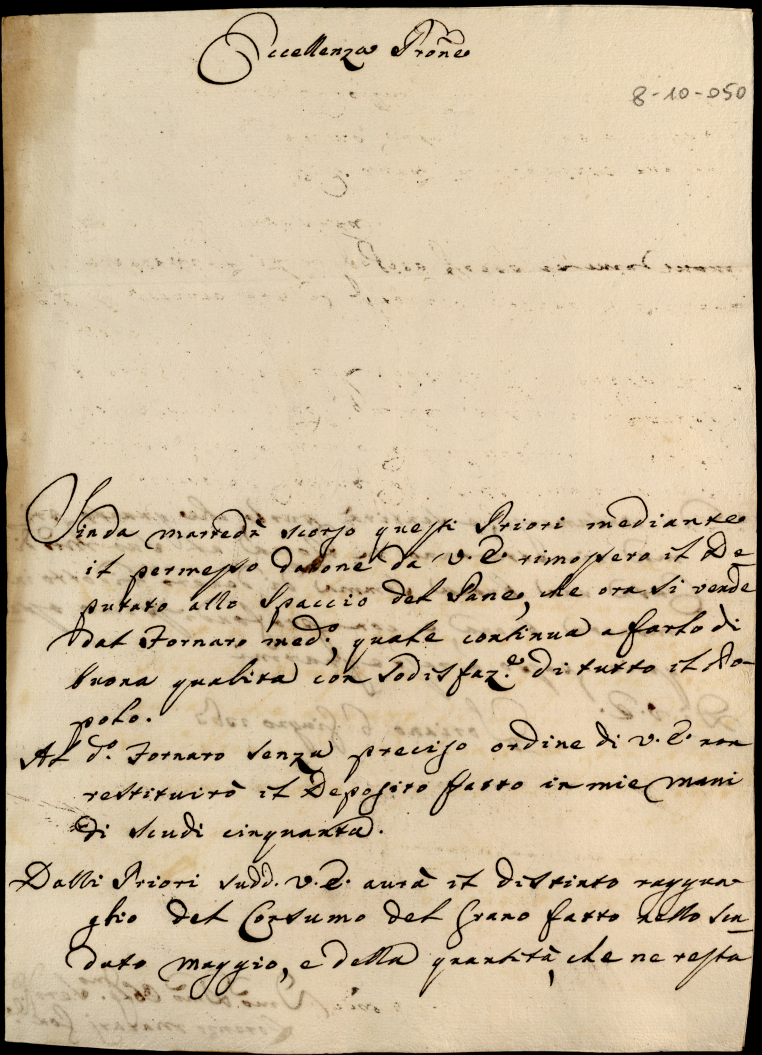 Eccellenza Prone
8-10-050
Sin da martedì scorso questi Priori mediante
il permesso datone da V. E. rimossero il De=
putato allo Spaccio del Pane, che ora si vende
dal Fornaro med.º, quale continua a farlo di
buona qualità con sodisfaz.e di tutto il Po-
polo.
Al d.º Fornaro senza preciso ordine di V. E. non
restituirò il Deposito fatto in mie mani
di scudi cinquanta.
Dalli Priori sudd. V. E. aurà il distinto raggua-
glio del Consumo del Grano fatto nello sca-
duto Maggio, e della quantità, che ne resta